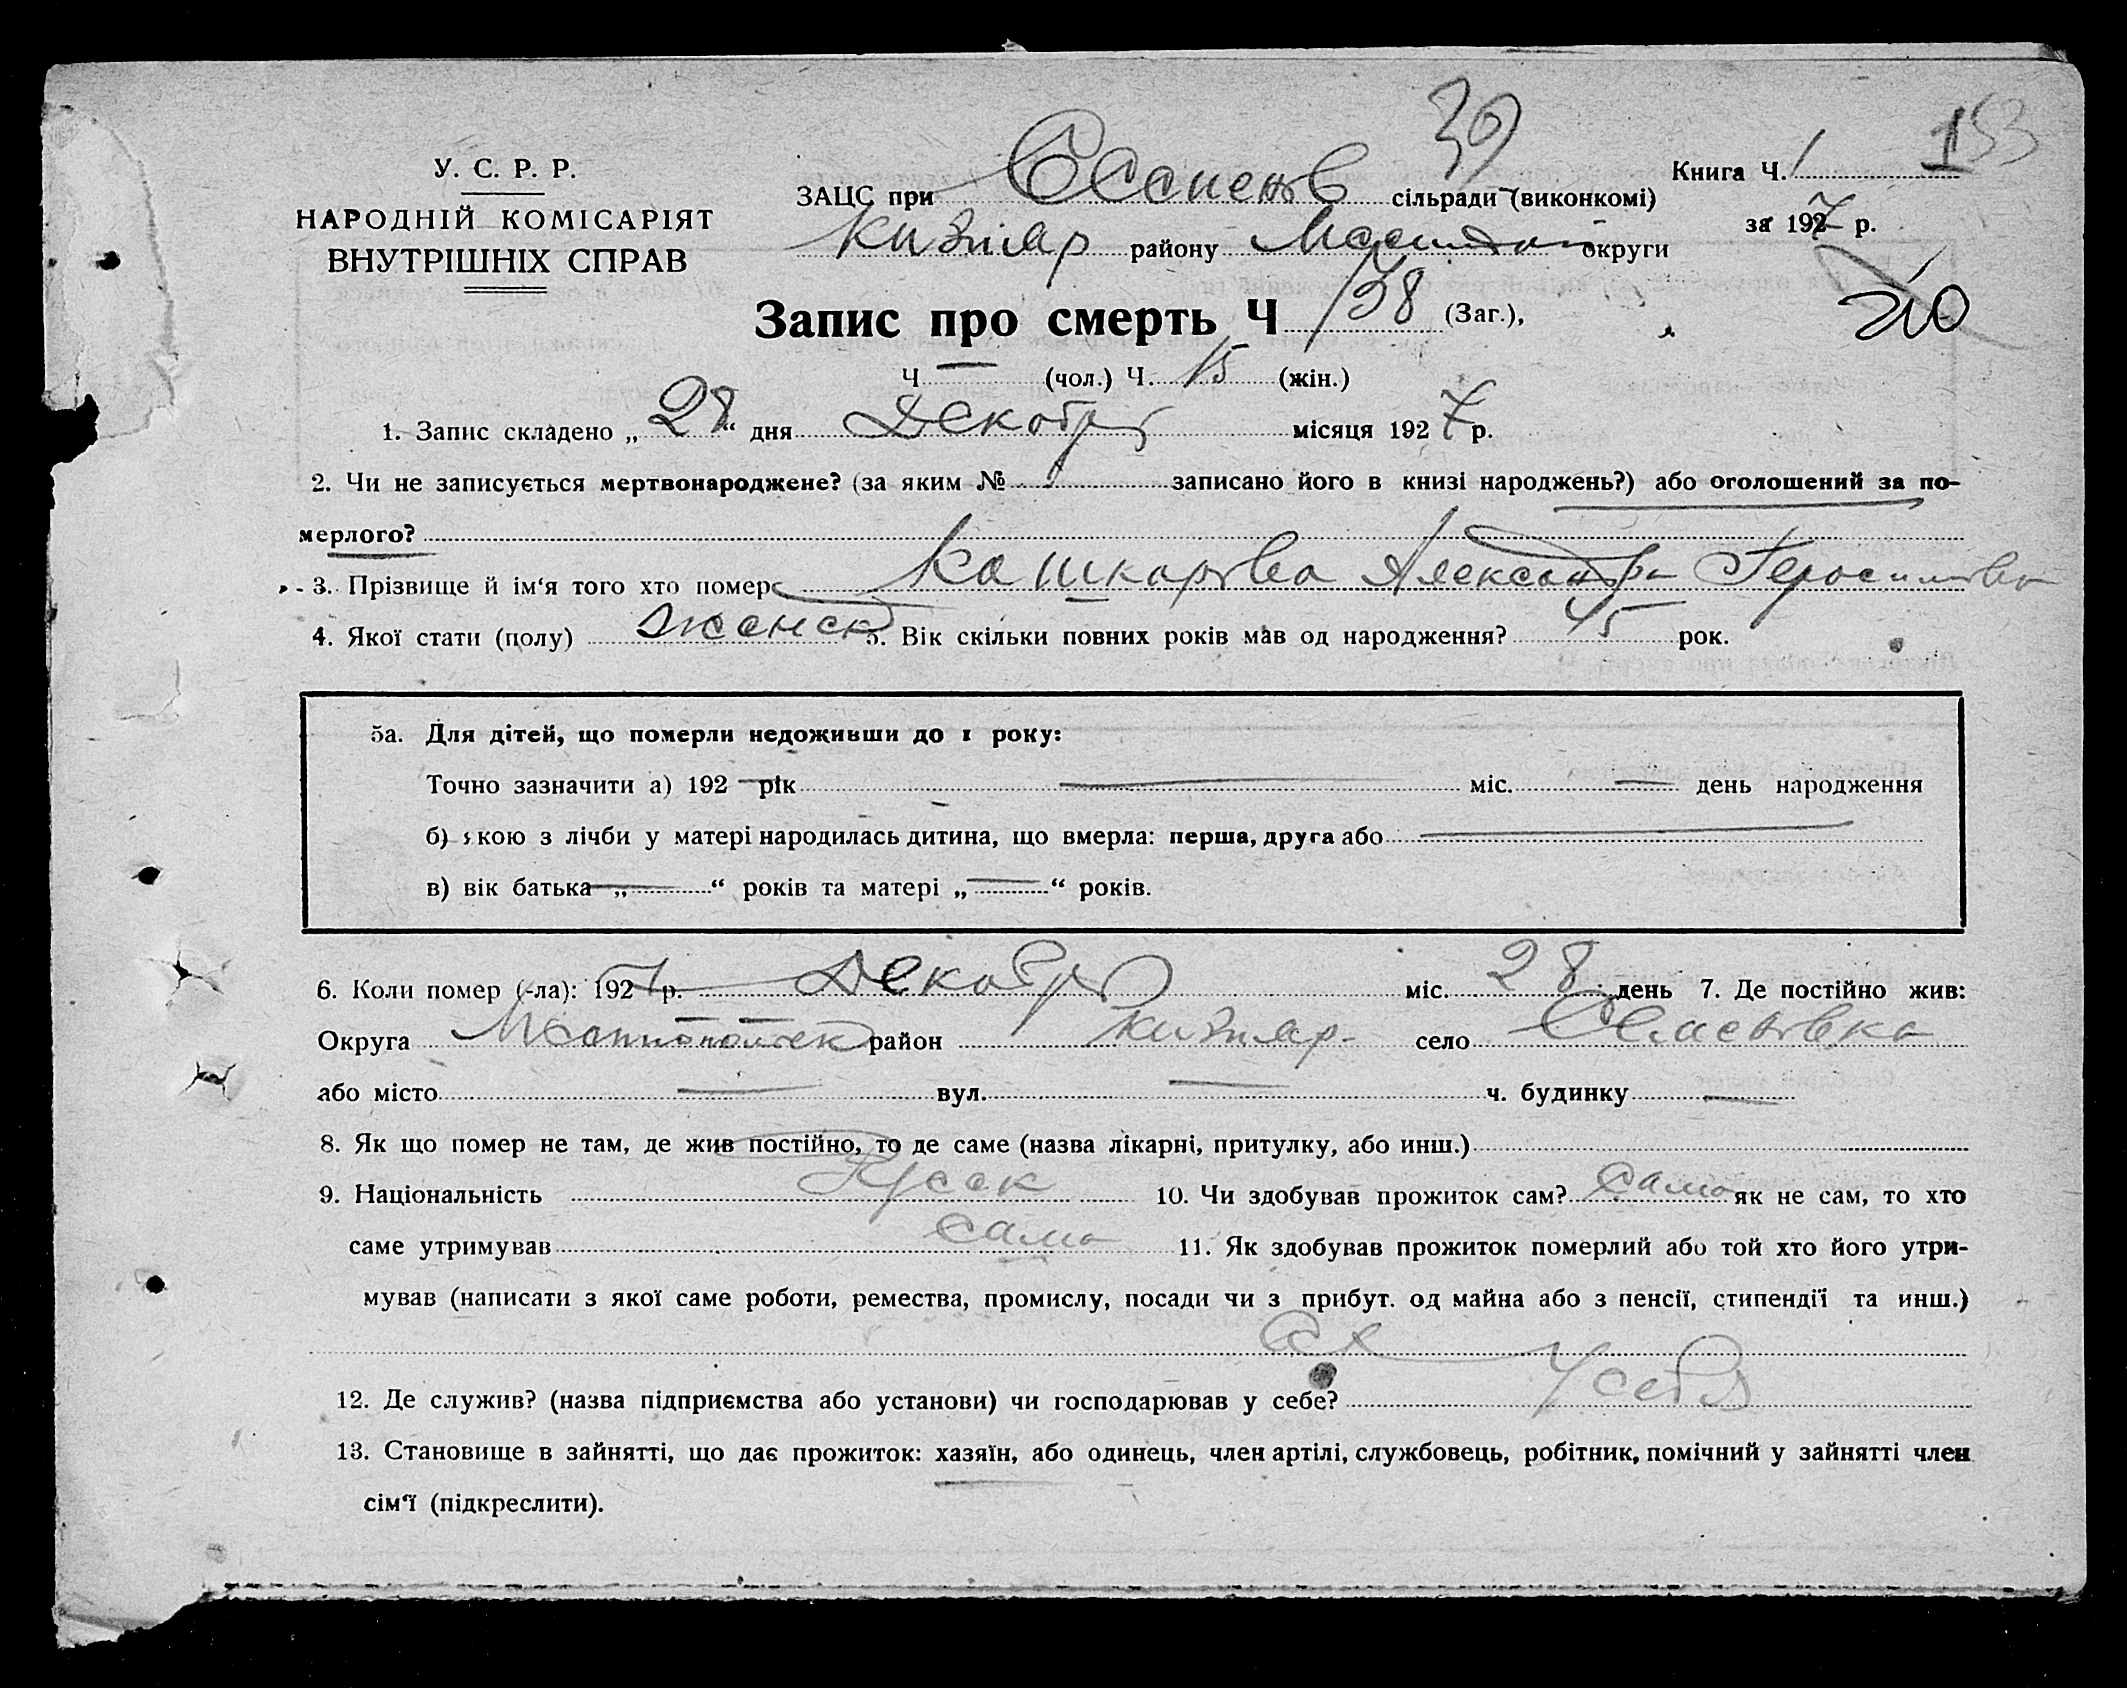 39
153
У. С. Р. Р.
НАРОДНІЙ КОМІСАРІЯТ
ВНУТРІШНІХ СПРАВ
ЗАЦС при сільради (виконкомі)
Книга Ч. 1
за 1927 р.
Кизияр району округи
Запис про смерть Ч 138 (Заг.),
Ч — (чол.) Ч. 15 (жін.)
1. Запис складено „28“ дня Декабря місяця 1927 р.
2. Чи не записується мертвонароджене? (за яким № записано його в книзі народжень?) або оголошений за по-
мерлого?
3. Прізвище й ім‘я того хто помер Кашкарова Александра Герасимовна
4. Якої стати (полу) женск 5. Вік скільки повних років мав од народження? 45 рок.
5а. Для дітей, що померли недоживши до 1 року:
Точно зазначити а) 192 — рік — міс. — день народження
б) якою з лічби у матері народилась дитина, що вмерла: перша, друга або —
в) вік батька „—“ років та матері „—“ років.
6. Коли помер (-ла): 1927 р. Декабря міс. 28 день 7. Де постійно жив:
Округа район Кизияр село
або місто — вул. — ч. будинку —
8. Як що помер не там, де жив постійно, то де саме (назва лікарні, притулку, або инш.)
9. Національність Русск 10. Чи здобував прожиток сам? сама як не сам, то хто
саме утримував сама 11. Як здобував прожиток померлий або той хто його утри-
мував (написати з якої саме роботи, ремества, промислу, посади чи з прибут. од майна або з пенсії, стипендії та инш.)
сх
12. Де служив? (назва підприємства або установи) чи господарював у себе? У себя
13. Становище в зайнятті, що дає прожиток: хазяїн, або одинець, член артілі, службовець, робітник, помічний у зайнятті член
сім‘ї (підкреслити).